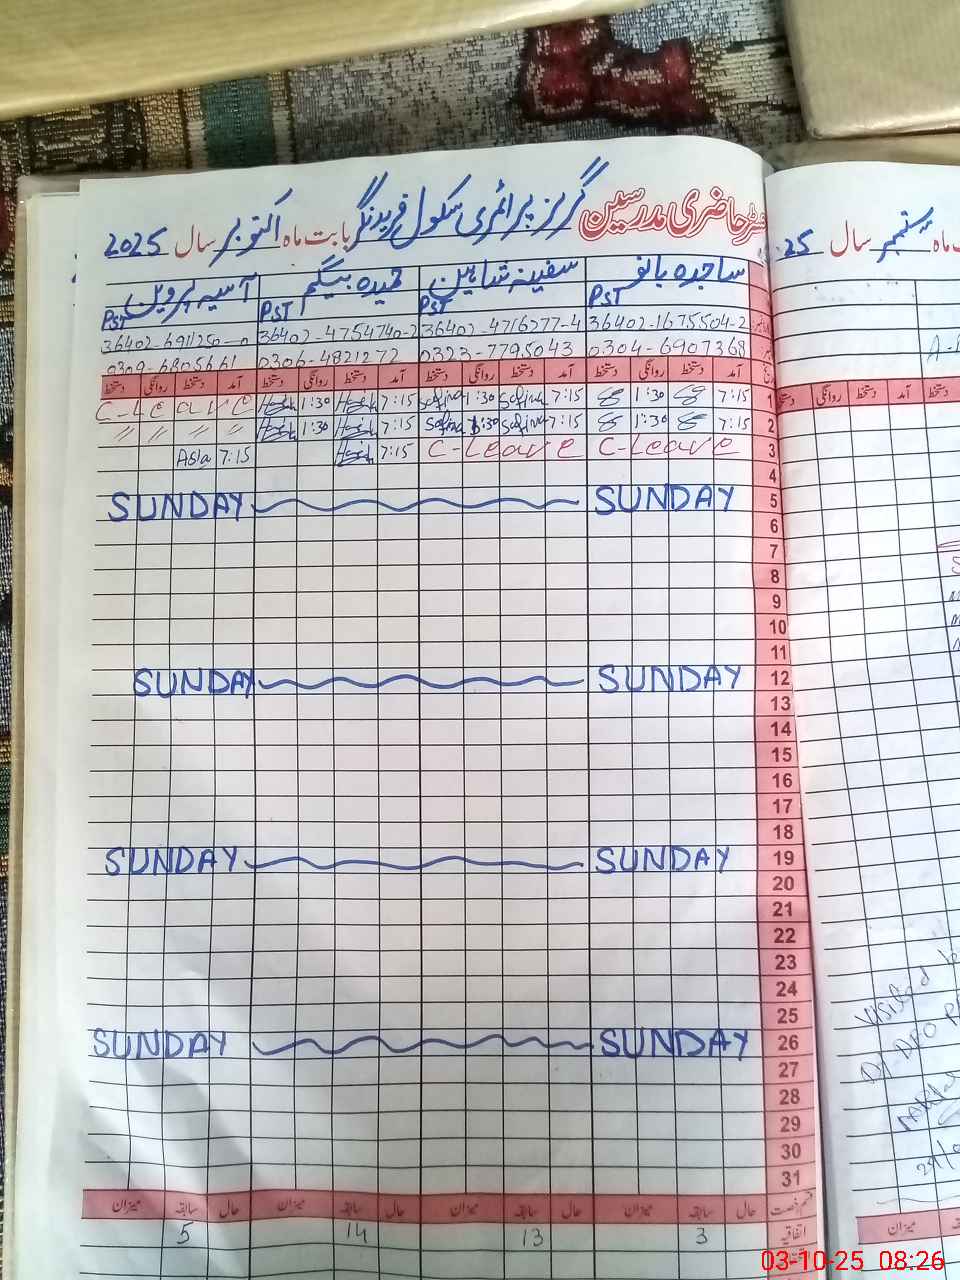 رجسٹر حاضری مدرسین گرلز پرائمری سکول فریدنگر بابت ماہ اکتوبر سال 2025
ساجدہ بانو سفینہ شاہین حمیدہ بیگم آسیہ پروین
PST PST PST PST
36402-1675504-2 36402-4716277-4 36402-4754740-2 36402-6911250-0
0304-6907368 0323-7795043 0306-4821272 0309-6805661
آمد دستخط روانگی دستخط آمد دستخط روانگی دستخط آمد دستخط روانگی دستخط آمد دستخط روانگی دستخط
1 7:15 1:30 7:15 Safina 1:30 Safina 7:15 1:30 C-Leave
2 7:15 1:30 7:15 Safina 1:30 Safina 7:15 1:30 // // // //
3 C-Leave C-Leave 7:15 7:15 Asia
4
5 SUNDAY SUNDAY
6
7
8
9
10
11
12 SUNDAY SUNDAY
13
14
15
16
17
18
19 SUNDAY SUNDAY
20
21
22
23
24
25
26 SUNDAY SUNDAY
27
28
29
30
31
قسم رخصت حال سابقہ میزان حال سابقہ میزان حال سابقہ میزان حال سابقہ میزان
اتفاقیہ 3 13 14 5
ماہ ستمبر سال 25
دستخط آمد دستخط روانگی دستخط
Visited
Dy. DEO
میزان
03-10-25 08:26